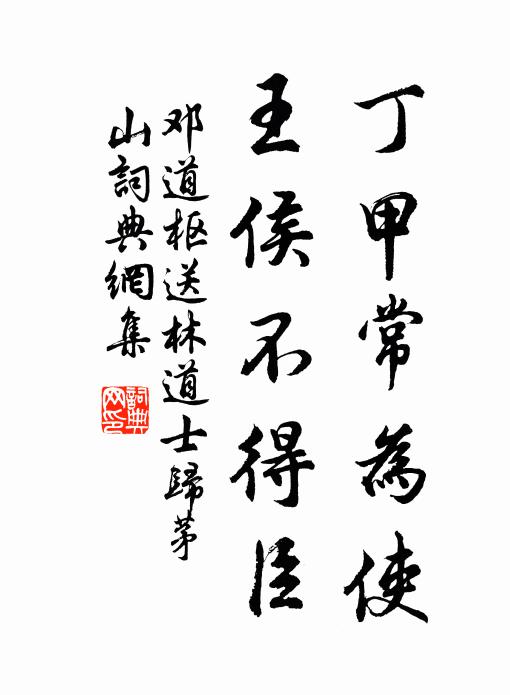 丁甲常為使
王侯不得臣
邓道枢送林道士歸茅
山詞典網集
詞典
网印